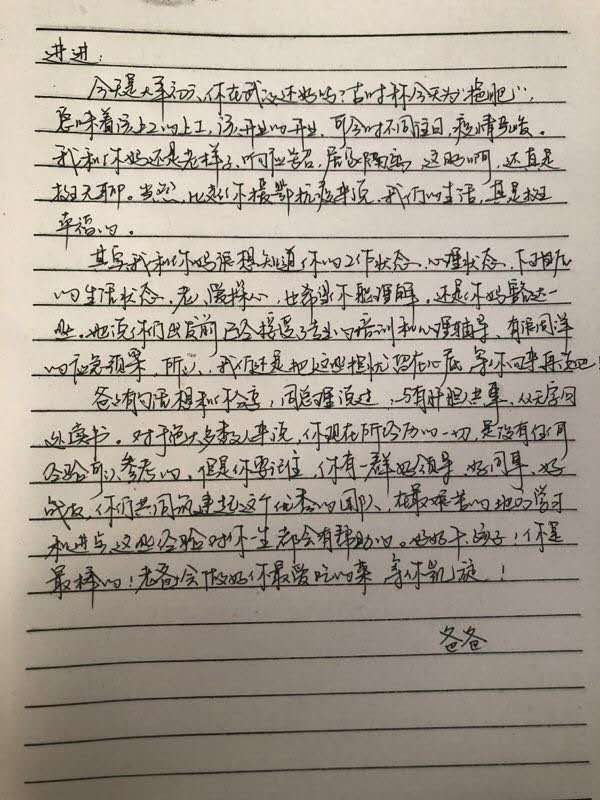 进进：
今天是大年初六，你在武汉还好吗？古时称今天为"挹肥"，
意味着该上工的上工，该开业的开业，可今时不同往日，疫情严峻。
我和你妈还是老样子，听从号召，居家隔离，这时间啊，还真是
挺无聊。当然，比起你援鄂抗疫来说，我们的生活，真是挺
幸福的。
其实我和你妈很想知道你的工作状态、心理状态、
的生活状态，老人爱操心，也希望你能理解。还是你妈豁达一
些。她说你们出发前已经接受了专业的培训和心理辅导、有很周详
的应急预案，所以，我们还是把这些担忧留在心底，等你回来再说吧！
爸爸有句话想和你分享，周总理说过：与有肝胆人共事，从无字句
处读书。对于绝大多数人来说，你现在所经历的一切，是没有任何
经验可以参考的，但是你要记住，你有一群好领导、好同事、好
战友，你们共同筑建起这个优秀的团队，在最艰苦的地方学习
和进步，这些经验对你一生都会有帮助的。好好干，孩子！你是
最棒的！老爸会做好你最爱吃的菜，等你凯旋！
爸爸